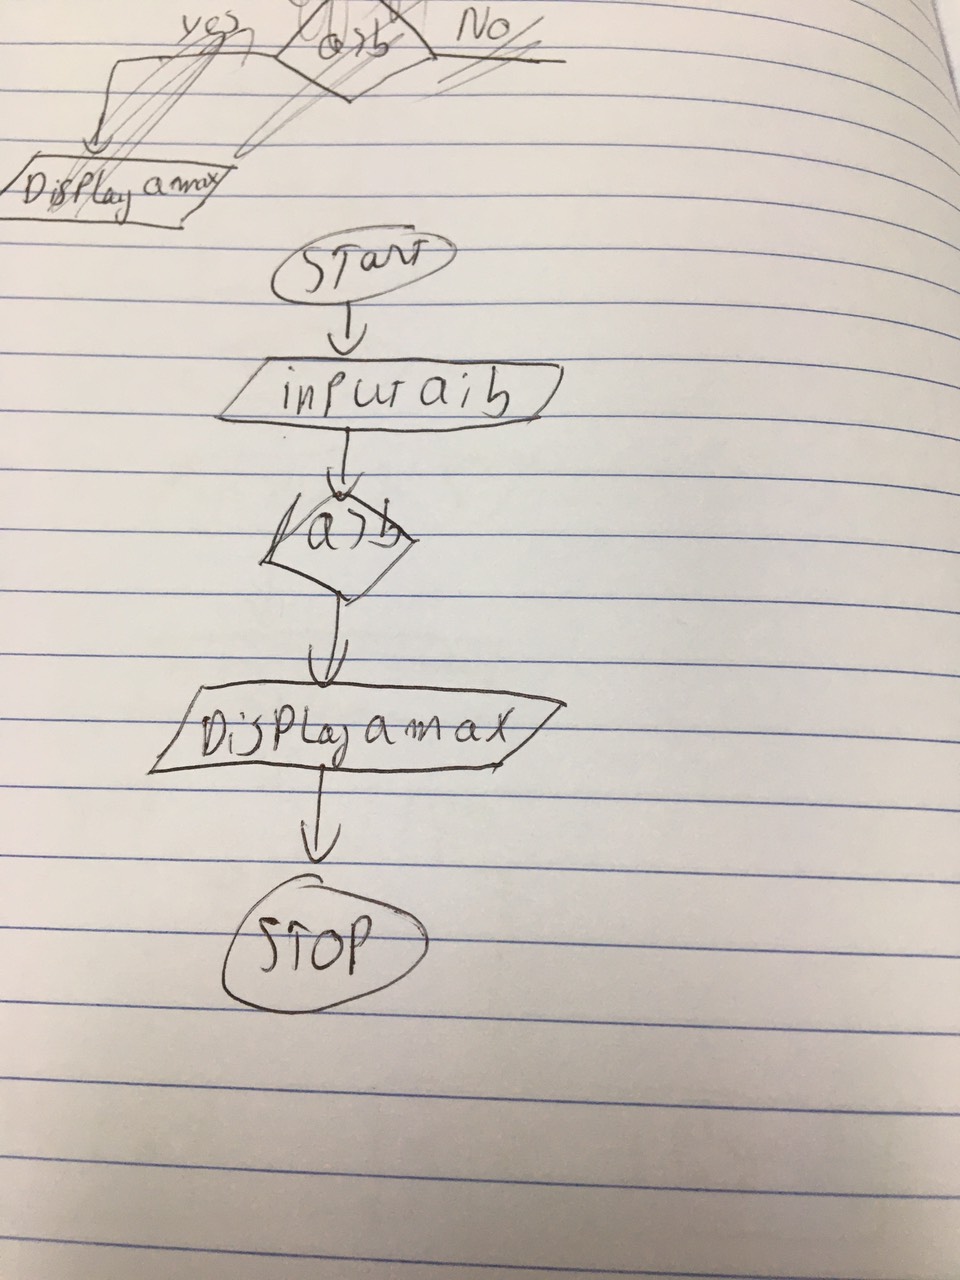 yes
a>b
No
Display a max
START
input a; b
a>b
Display a max
STOP